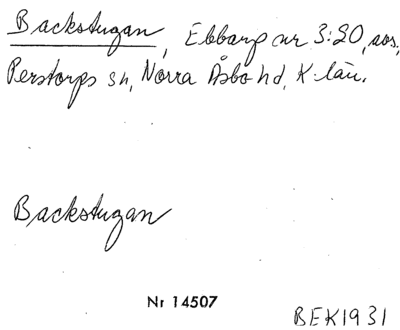 Backstugan, Ebbarp nr 3:20, sos,
Perstorps sn, Norra Åsbo hd, K-län.
Backstugan
Nr 14507
BEK1931